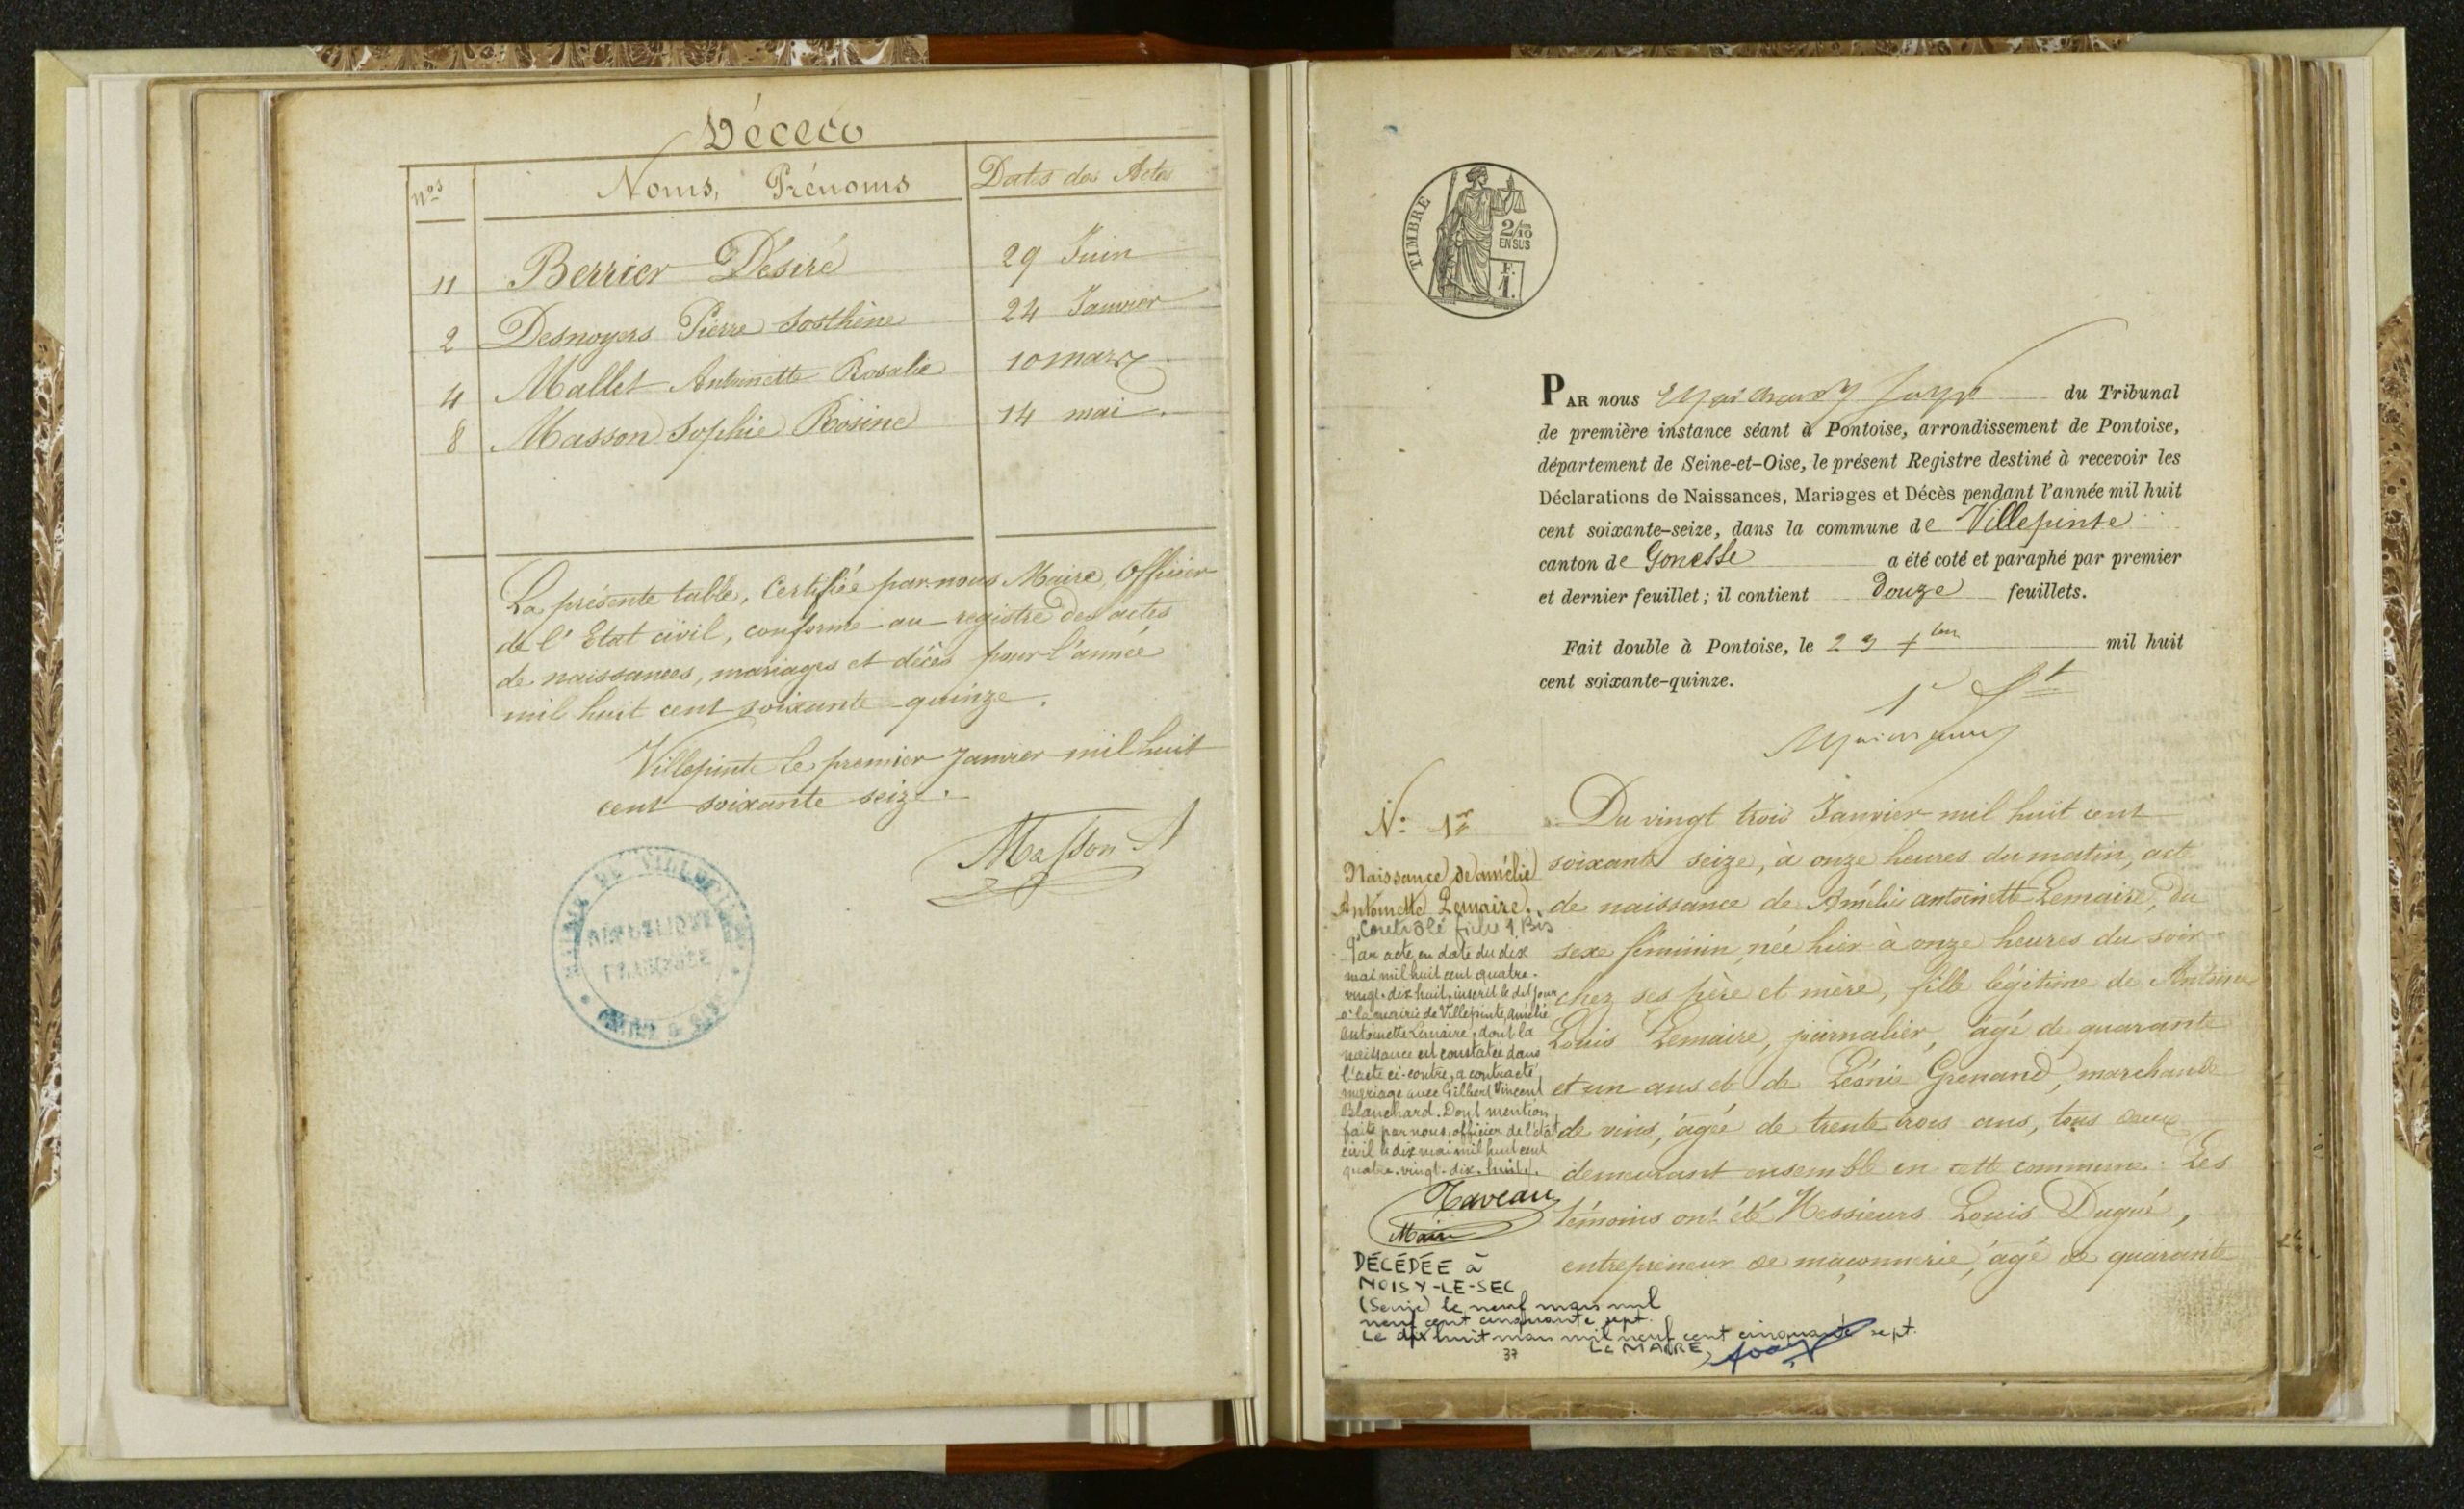 Décès
Nos Noms, Prénoms Dates des Actes
11 Berrier Désiré 29 Juin
2 Desnoyers Pierre Sosthène 24 Janvier
4 Mallet Antoinette Rosalie 10 mars
8 Masson Sophie Rosine 14 mai.
La présente table, Certifiée par nous Maire, Officier
de l'Etat civil, conforme au registre des actes
de naissances, mariages et décès pour l'année
mil huit cent soixante-quinze.
Villepinte le premier Janvier mil huit
cent soixante seize.
Masson A
MAIRIE DE VILLEPINTE
REPUBLIQUE
FRANÇAISE
SEINE & OISE
TIMBRE
2/10
EN SUS
F.
1.
PAR nous Juge du Tribunal
de première instance séant à Pontoise, arrondissement de Pontoise,
département de Seine-et-Oise, le présent Registre destiné à recevoir les
Déclarations de Naissances, Mariages et Décès pendant l'année mil huit
cent soixante-seize, dans la commune de Villepinte
canton de Gonesse a été coté et paraphé par premier
et dernier feuillet; il contient douze feuillets.
Fait double à Pontoise, le 23 Xbre mil huit
cent soixante-quinze.
N° 1er
Naissance de amélie
Antoinette Lemaire.
Contrôlé fiche 1 Bis
Par acte en date du dix
mai mil huit cent quatre-
vingt-dix huit, inscrit le dit jour
à la mairie de Villepinte, amélie
antoinette Lemaire, dont la
naissance est constatée dans
l'acte ci-contre, a contracté
mariage avec Gilbert Vincent
Blanchard. Dont mention
faite par nous, officier de l'état
civil le dix mai mil huit cent
quatre-vingt-dix-huit.
Taveau
Maire
DÉCÉDÉE à
NOISY-LE-SEC
(Seine) le neuf mars mil
neuf cent cinquante sept.
Le dix huit mars mil neuf cent cinquante sept.
37 Le MAIRE,
Du vingt trois Janvier mil huit cent
soixante seize, à onze heures du matin, acte
de naissance de Amélie antoinette Lemaire, du
sexe féminin, née hier à onze heures du soir
chez ses père et mère, fille légitime de Antoine
Louis Lemaire, journalier, âgé de quarante
et un ans et de Léonie Grenand, marchande
de vins, âgée de trente trois ans, tous deux
demeurant ensemble en cette commune. Les
témoins ont été Messieurs Louis Dugué,
entrepreneur de maçonnerie, âgé de quarante